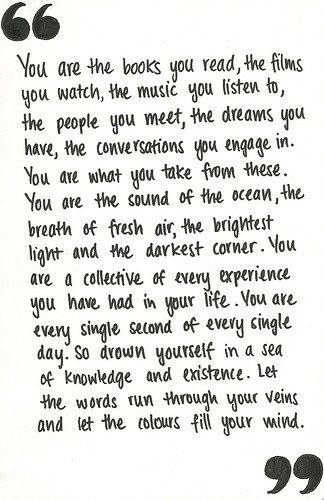 “
You are the books you read, the films
you watch, the music you listen to,
the people you meet, the dreams you
have, the conversations you engage in.
You are what you take from these.
You are the sound of the ocean, the
breath of fresh air, the brightest
light and the darkest corner. You
are a collective of every experience
you have had in your life. You are
every single second of every single
day. So drown yourself in a sea
of knowledge and existence. Let
the words run through your veins
and let the colours fill your mind.
”